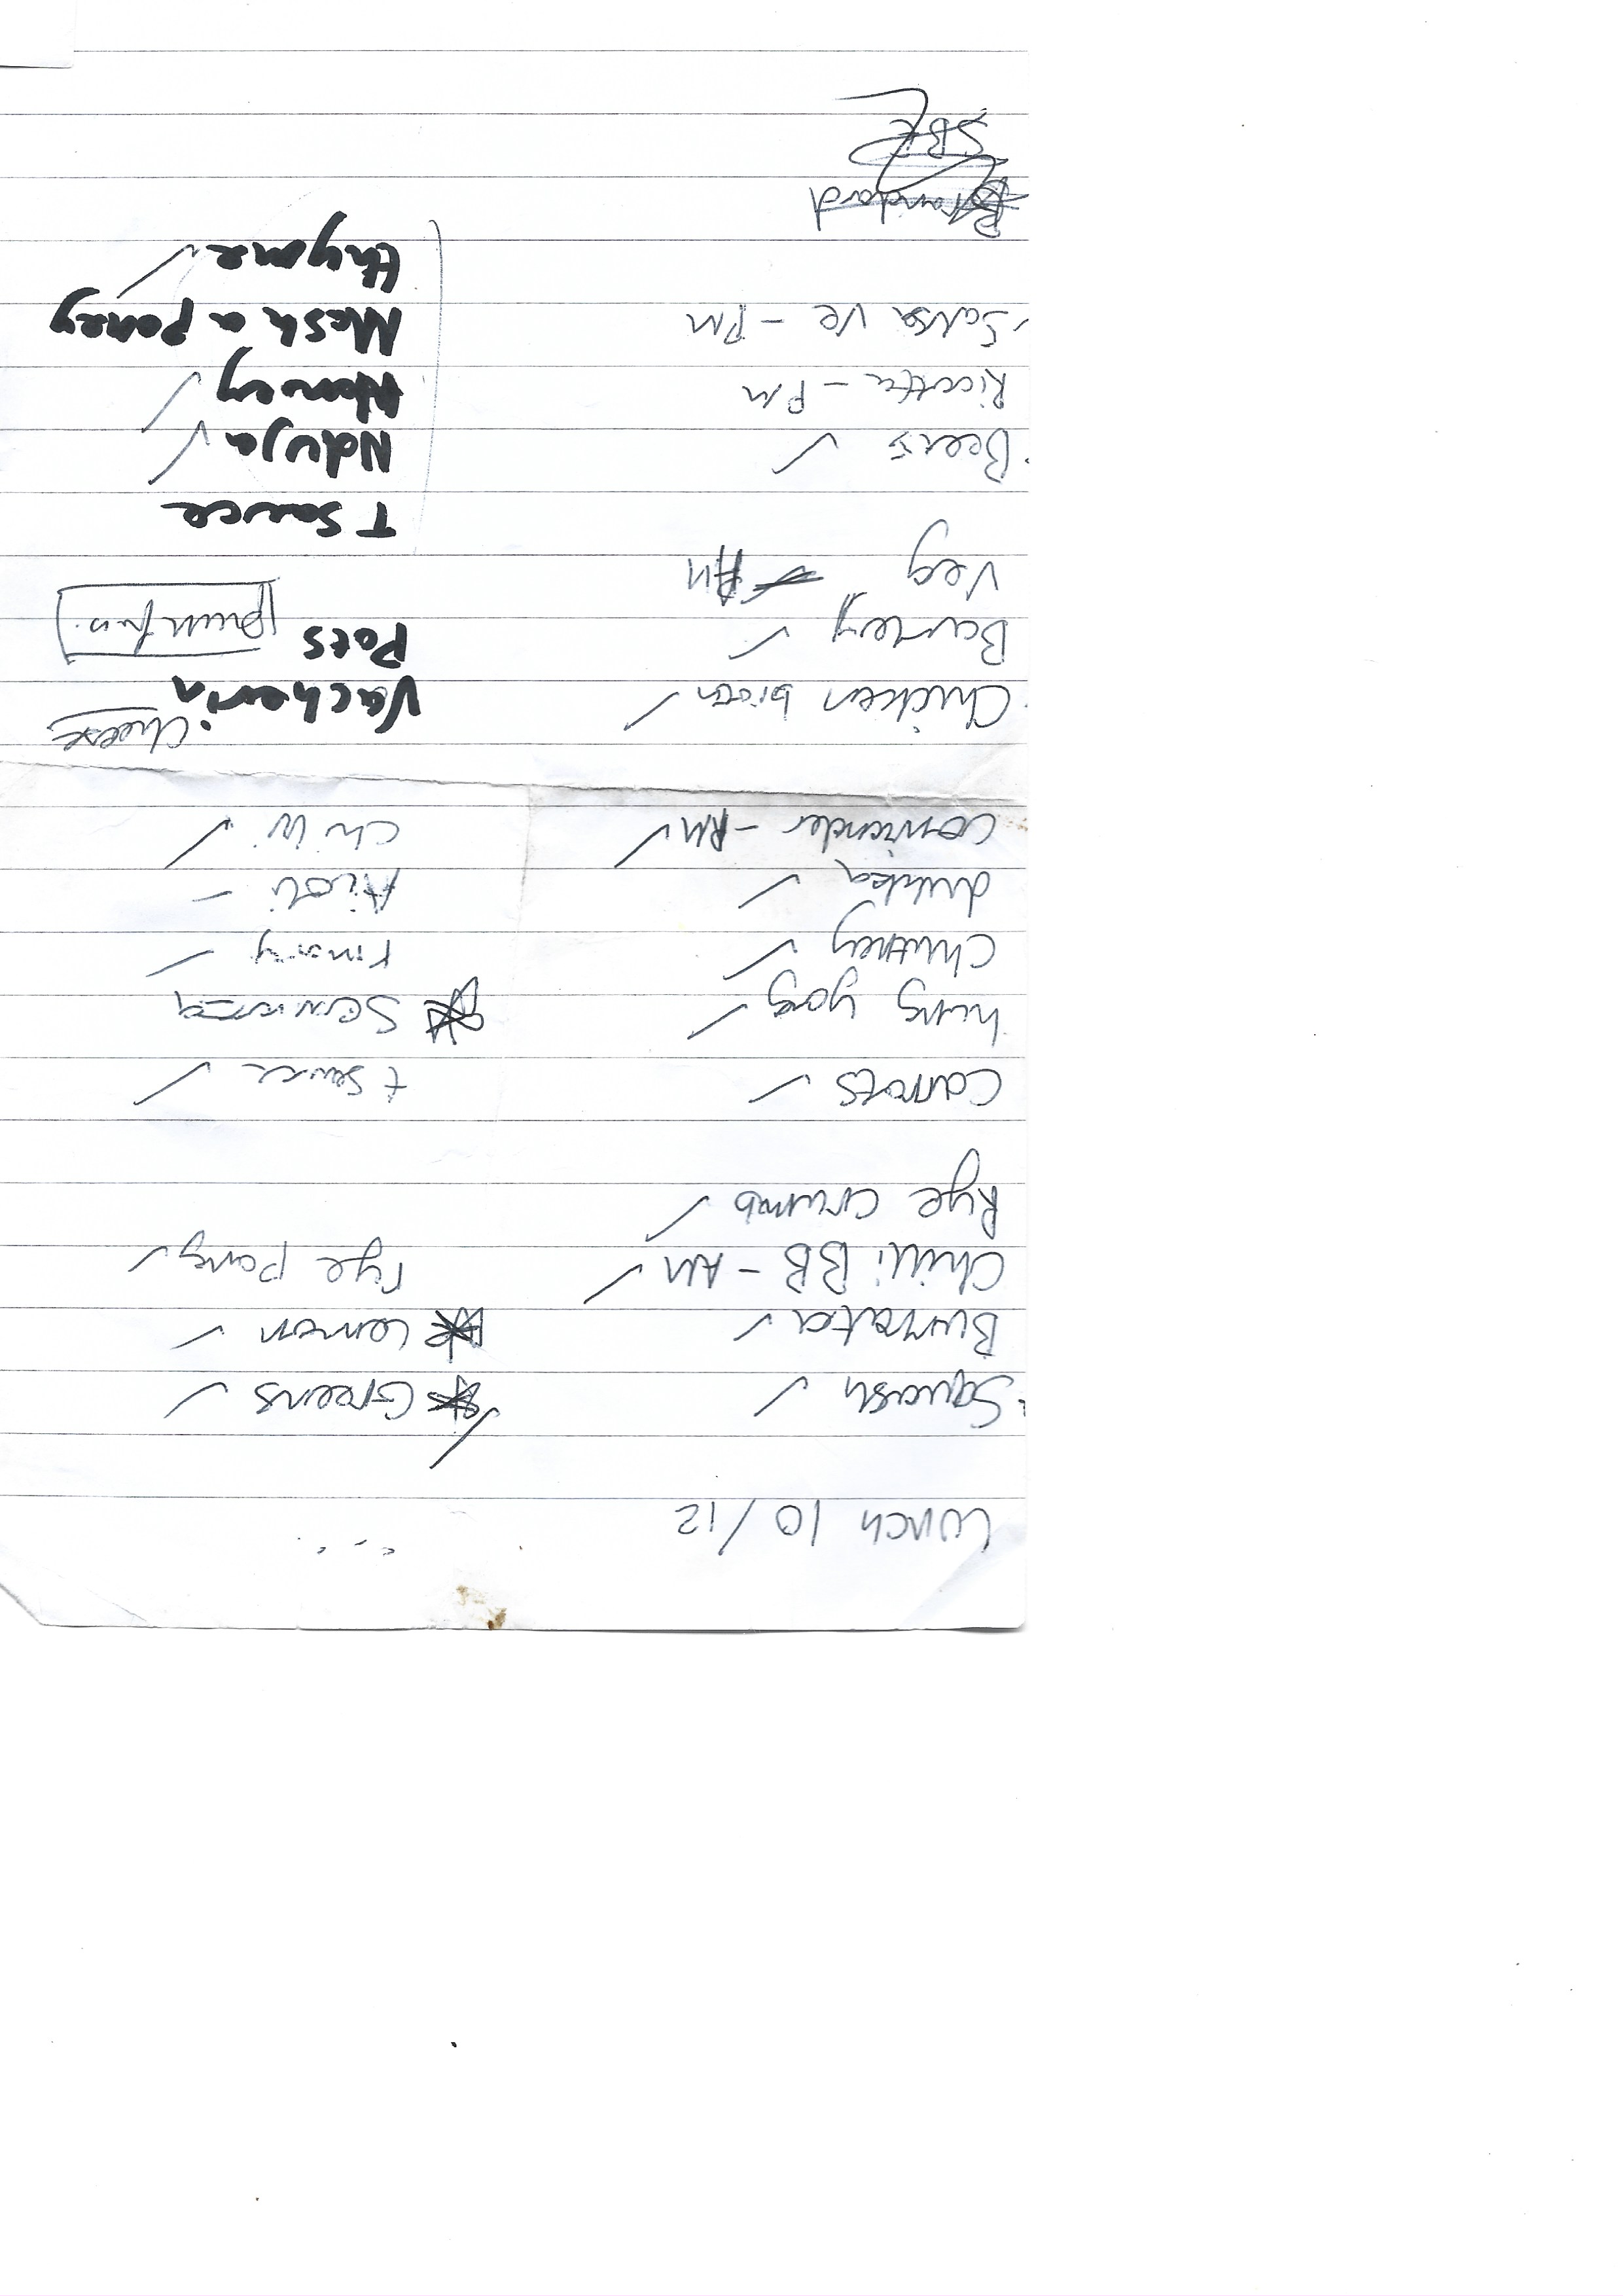 Lunch 10/12
Squash ✓
Burrata ✓
Chilli BB - AM ✓
Rye crumb ✓
Carrots ✓
hung yog ✓
Chutney ✓
dukka ✓
Corriander - AM ✓
Chicken broth ✓
Barley ✓
Veg AM
Beets ✓
Ricotta - PM
Salsa Ve - PM
SBE
* Greens ✓
* Lemon ✓
rye pang ✓
t sauce ✓
* Semolina
rmary ✓
Aioli -
Chilli ✓
Vacherin Cheese
Pots
T Sauce
Nduja ✓
Honey ✓
Mash a parsey
thyme ✓